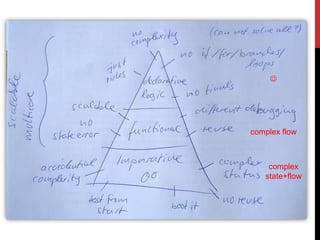 no
complexity
(can not solve all?)
no if/for/branches/
loops
just
rules
declarative
logic
no tinals
☺
scalable
different debugging
no
state error
functional
reuse
complex flow
scalable
multicore
accidential
complexity
Imparative
OO
complex
status
complex
state+flow
test from
start
boot it
no reuse